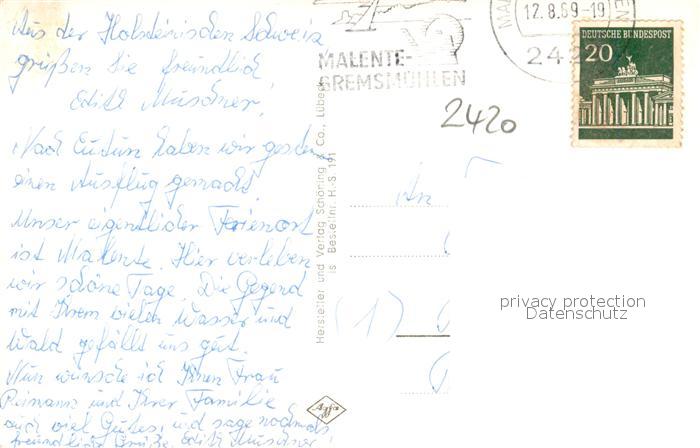 Aus der Holsteinischen Schweiz
grüßen Sie freundlich
Edith Muschner!
Nach Eutin haben wir gestern
einen Ausflug gemacht.
Unser eigentlicher Ferienort
ist Malente. Hier verleben
wir schöne Tage. Die Gegend
mit Ihrem vielen Wasser und
Wald gefällt uns gut.
Nun wünsche ich Ihnen Frau
Reimann und Ihrer Familie
auch viel Gutes, und sage nochmals
freundliche Grüße. Edith Muschner!
Hersteller und Verlag Schöning & Co., Lübeck
Bestellnr. H.-S. 191
Agfa
MALENTE-
GREMSMÜHLEN
12.8.69-19
242
DEUTSCHE BUNDESPOST
20
2420
An
(1)
privacy protection
Datenschutz